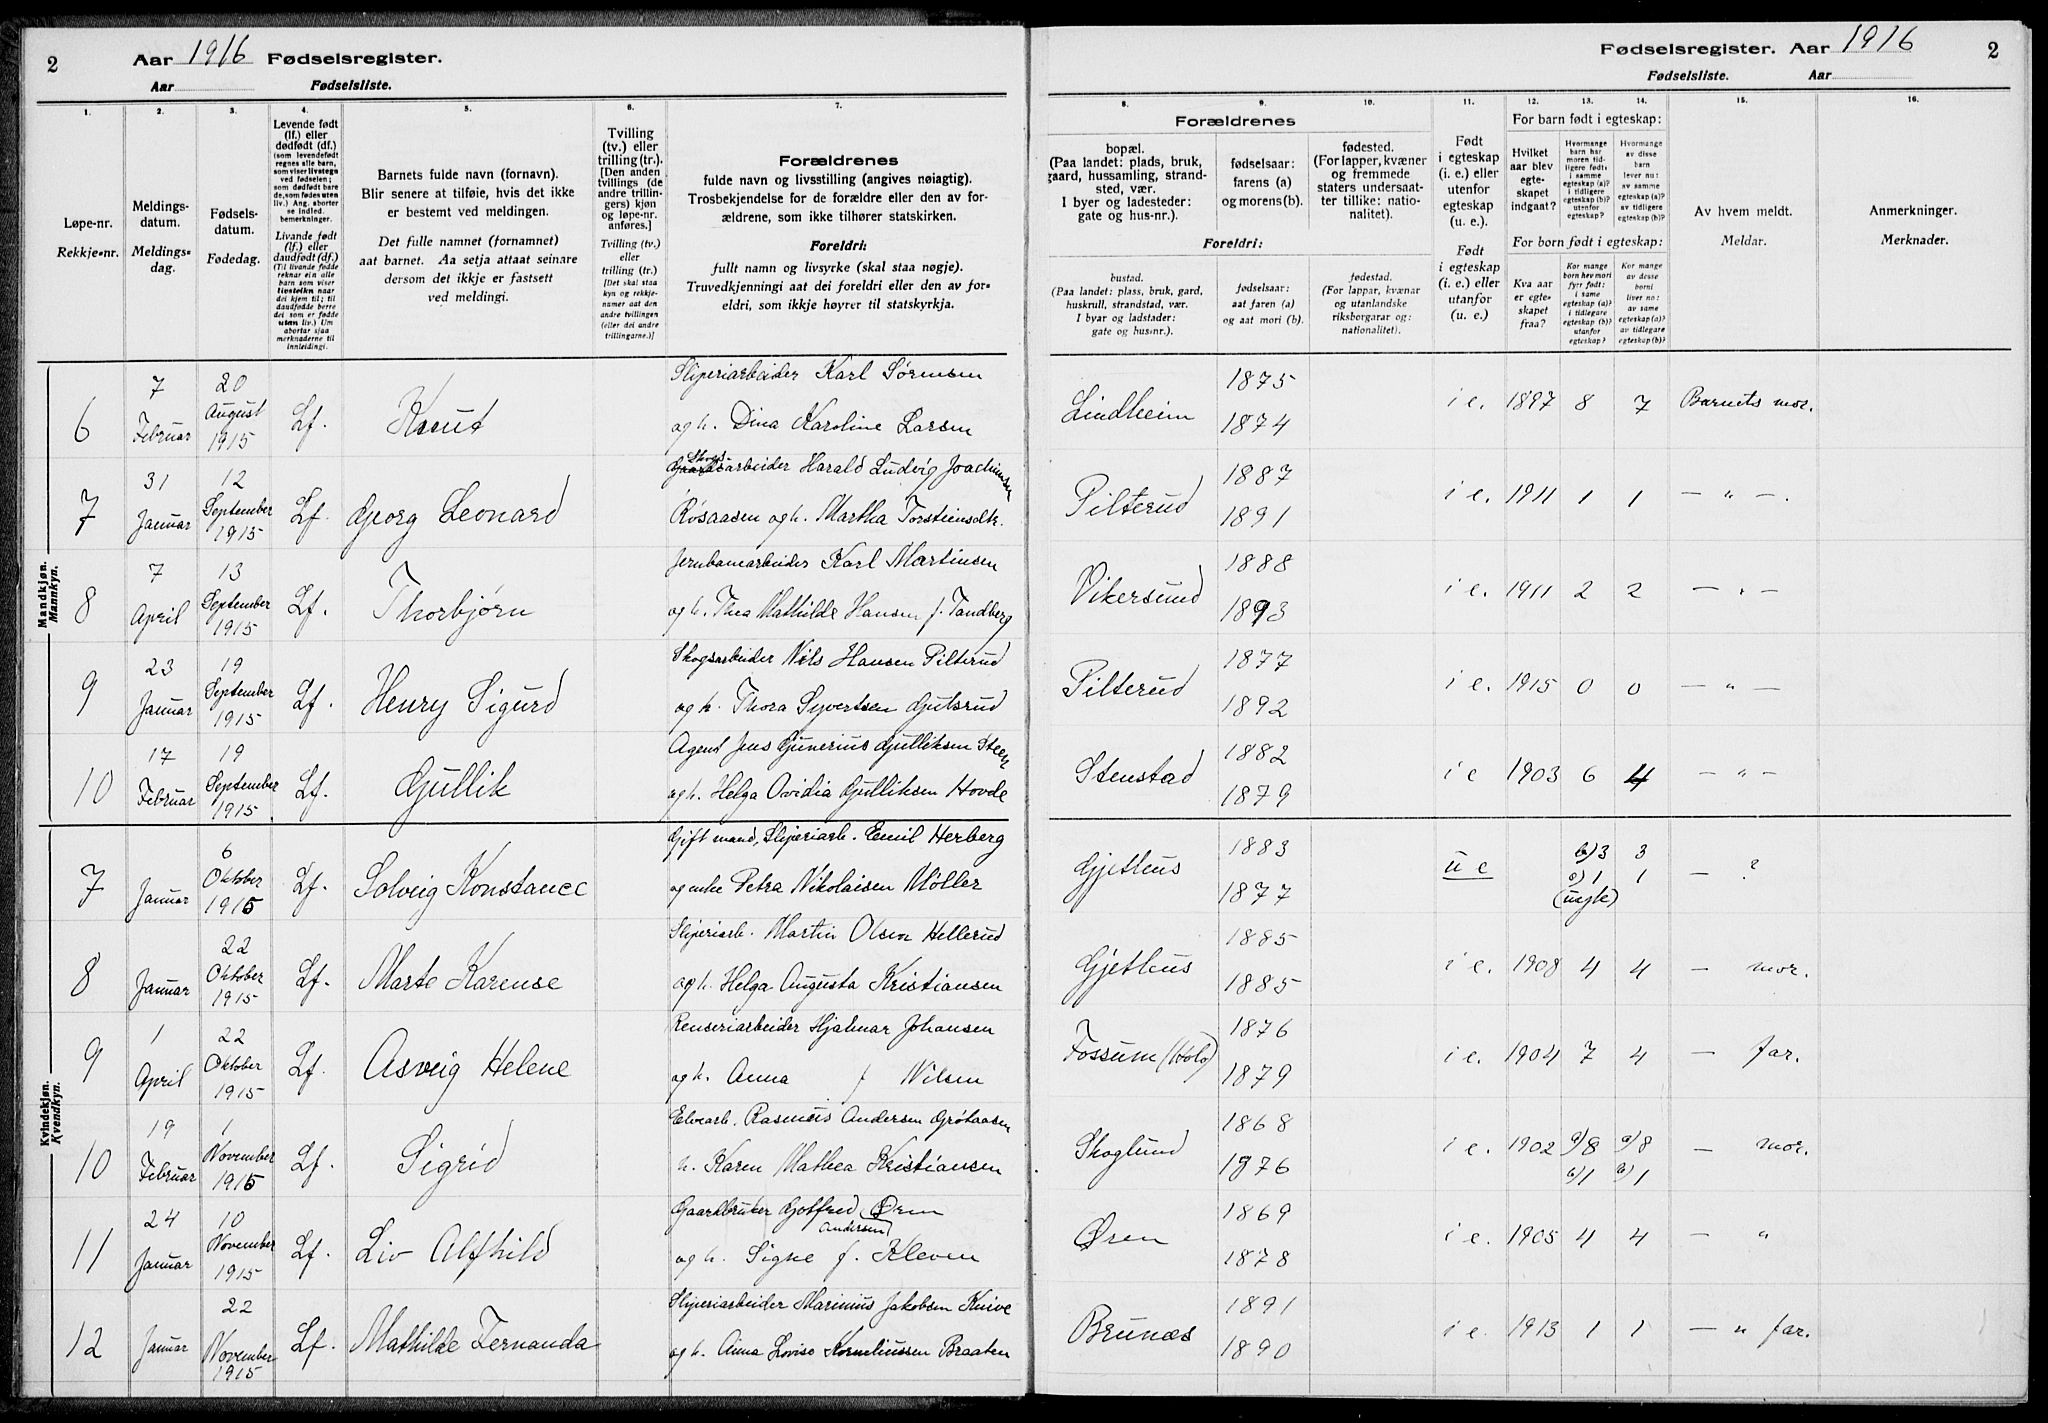 2 Aar 1916 Fødselsregister.
Aar Fødselsliste.
Fødselsregister. Aar 1916 2
Fødselsliste. Aar
1. 2. 3. 4. 5. 6. 7. 8. 9. 10. 11. 12. 13. 14. 15. 16.
Løpe-nr.
Rekkje-nr.
Meldings-
datum.
Meldings-
dag.
Fødsels-
datum.
Fødedag.
Levende født
(lf.) eller
dødfødt (df.)
Livande født
(lf.) eller
daudfødt (df.)
Barnets fulde navn (fornavn).
Blir senere at tilføie, hvis det ikke
er bestemt ved meldingen.
Det fulle namnet (fornamnet)
aat barnet. Aa setja attaat seinare
dersom det ikkje er fastsett
ved meldingi.
Tvilling
(tv.) eller
trilling (tr.).
[Den anden
tvillings (de
andre trillin-
gers) kjøn
og løpe-nr.
anføres.]
Tvilling (tv.)
eller
trilling (tr.)
[Det skal staa
kyn og rekkje-
numer aat den
andre tvillingen
(eller dei andre
trillingarne.)]
Forældrenes
fulde navn og livsstilling (angives nøiagtig).
Trosbekjendelse for de forældre eller den av for-
ældrene, som ikke tilhører statskirken.
Foreldri:
fullt namn og livsyrke (skal staa nøgje).
Truvedkjenningi aat dei foreldri eller den av for-
eldri, som ikkje høyrer til statskyrkja.
Forældrenes
bopæl.
(Paa landet: plads, bruk,
gaard, hussamling, strand-
sted, vær.
I byer og ladesteder:
gate og hus-nr.).
fødselsaar:
farens (a)
og morens (b).
fødested.
(For lapper, kvæner
og fremmede
staters undersaat-
ter tillike: natio-
nalitet).
Foreldri:
bustad.
(Paa landet: plass, bruk, gard,
huskrull, strandstad, vær.
I byar og ladstader:
gate og hus-nr.).
fødselsaar:
aat faren (a)
og aat mori (b).
fødestad.
(For lappar, kvænar
og utanlandske
riksborgarar og:
nationalitet).
Født
i egteskap
(i. e.) eller
utenfor
egteskap
(u. e.).
Født
i egteskap
(i. e.) eller
utanfor
(u. e.)
For barn født i egteskap:
Hvilket
aar blev
egte-
skapet
indgaat?
For born født i egteskap:
Kva aar
er egte-
skapet
fraa?
Av hvem meldt.
Meldar.
Anmerkninger.
Merknader.
Mandkjøn.
Mannkyn.
6 7 Februar 20 August 1915 Lf. Knut Sliperiarbeider Karl Sørensen
og h. Dina Karoline Larsen Lindheim 1875 1874 i e. 1897 8 7 Barnets mor.
7 31 Januar 12 September 1915 Lf. Georg Leonard Skogsarbeider Harald Ludvig Joachimsen
Rosaasen og h. Martha Torsteinsdtr. Pilterud 1887 1891 i e. 1911 1 1 — " —.
8 7 April 13 September 1915 Lf. Thorbjørn Jernbanearbeider Karl Martinsen
og h. Thea Mathilde Hansen f. Tandberg Vikersund 1888 1893 i e. 1911 2 2 — " —
9 23 Januar 19 September 1915 Lf. Henry Sigurd Skogsarbeider Nils Hansen Pilterud
og h. Thora Syvertsen Gutsrud Pilterud 1877 1892 i e. 1915 0 0 — " —
10 17 Februar 19 September 1915. Lf. Gullik Agent Jens Gunerius Gulliksen Steen
og h. Helga Ovidia Gulliksen Hovde Stenstad 1882 1879 i e 1903 6 4 — " —
Kvindekjøn.
Kvendkyn.
7 Januar 6 Oktober 1915 Lf. Solveig Konstance Gift mand, Sliperiarb. Emil Herberg
og enke Petra Nikolaisen Møller Gjethus 1883 1877 u e b) 3 3 a) 1 1 (uegte) — ?
8 Januar 22 Oktober 1915 Lf. Marte Karense Sliperiarb. Martin Olsen Hellerud
og h. Helga Augusta Kristiansen Gjethus 1885 1885 i e. 1908 4 4 — mor.
9 1 April 22 Oktober 1915 Lf. Asveig Helene Renseriarbeider Hjalmar Johansen
og h. Anna f Nilsen Fossum (Holo) 1876 1879 i e. 1904 7 4 — far.
10 19 Februar 1 November 1915 Lf. Sigrid Elvearb. Rasmus Andersen Grøtaasen
h. Karen Mathea Kristiansen Skoglund 1868 1876 i e. 1902 a) 8 a) 8 b) 1 b) 1 — mor.
11 24 Januar 10 November 1915 Lf. Liv Alfhild Gaardbruker Gotfred Øren
Andersen
og h. Signe f. Kleven Øren 1869 1878 i e. 1905 4 4 — "
12 Januar 22 November 1915 Lf. Mathilde Fernanda Sliperiarbeider Marinius Jakobsen Knive
og h. Anna Lovise Korneliussen Braaten Brunæs 1891 1890 i e. 1913 1 1 — " far.